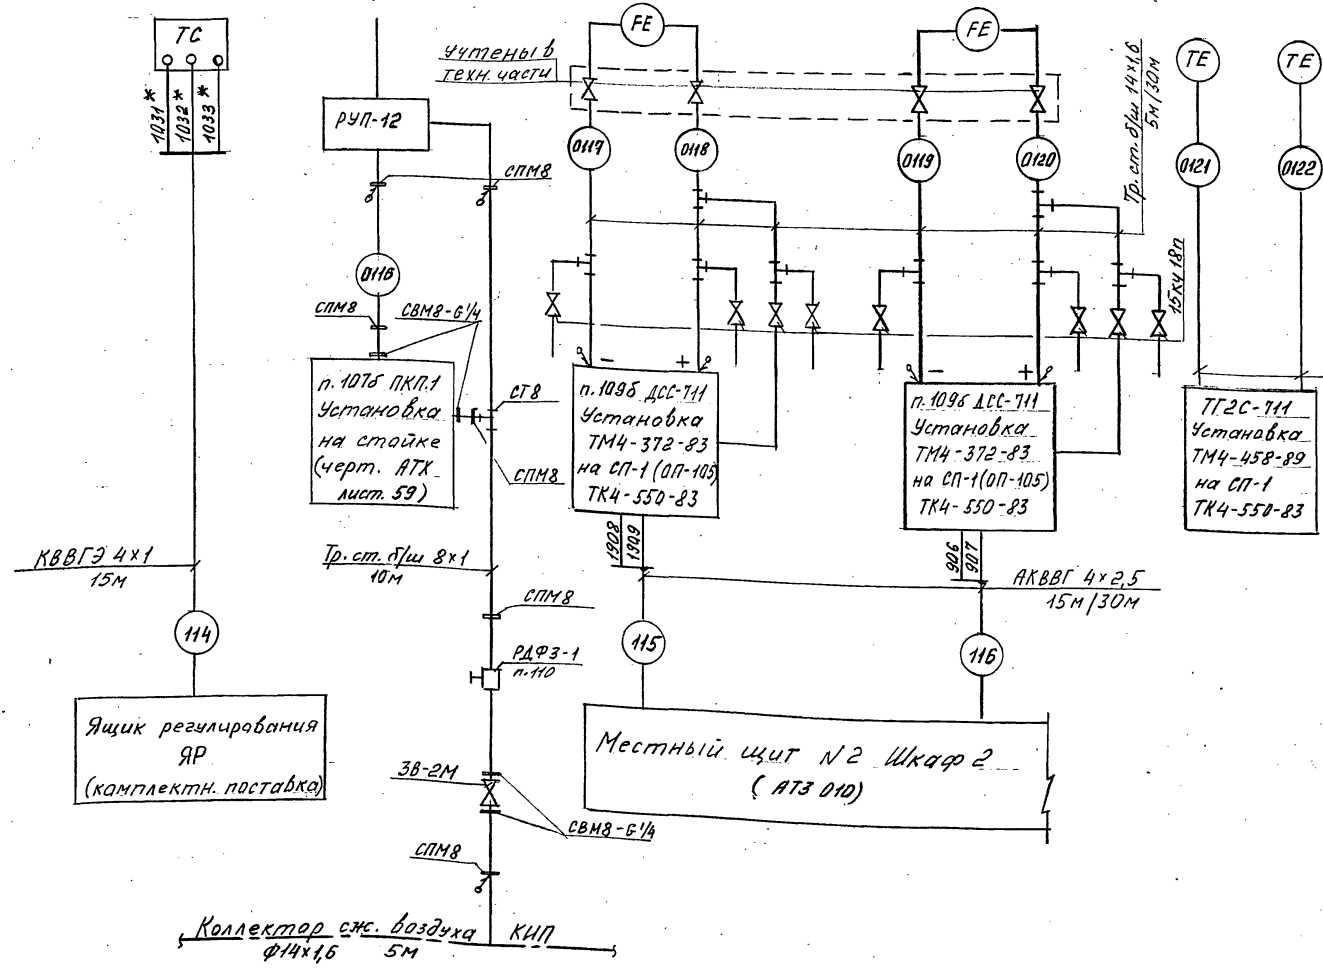 ТС
1031*
1032*
1033*
КВВГЭ 4×1
15м
114
Ящик регулирования
ЯР
(комплектн. поставка)
РУП-12
СПМ8
0116
СПМ8
СВМ8-G1/4
п.107б ПКП.1
Установка
на стойке
(черт. АТХ
лист. 59)
СТ8
СПМ8
Тр. ст. б/ш 8×1
10м
СПМ8
РДФЗ-1
п.110
ЗВ-2М
СВМ8-G1/4
СПМ8
Коллектор сж. воздуха КИП
Ф14×1,6 5м
Учтены в
техн. части
FE
FE
0117
0118
0119
0120
Тр. ст. б/ш 14×1,6
5м/30м
15кч 18п
− +
п.109б ДСС-711
Установка
ТМ4-372-83
на СП-1 (ОП-105)
ТК4-550-83
1908
1909
− +
п.109б ДСС-711
Установка
ТМ4-372-83
на СП-1(ОП-105)
ТК4-550-83
906
907
АКВВГ 4×2,5
15м/30м
115
116
Местный щит N2 Шкаф 2
(АТЗ 010)
ТЕ
ТЕ
0121
0122
ТГ2С-711
Установка
ТМ4-458-89
на СП-1
ТК4-550-83